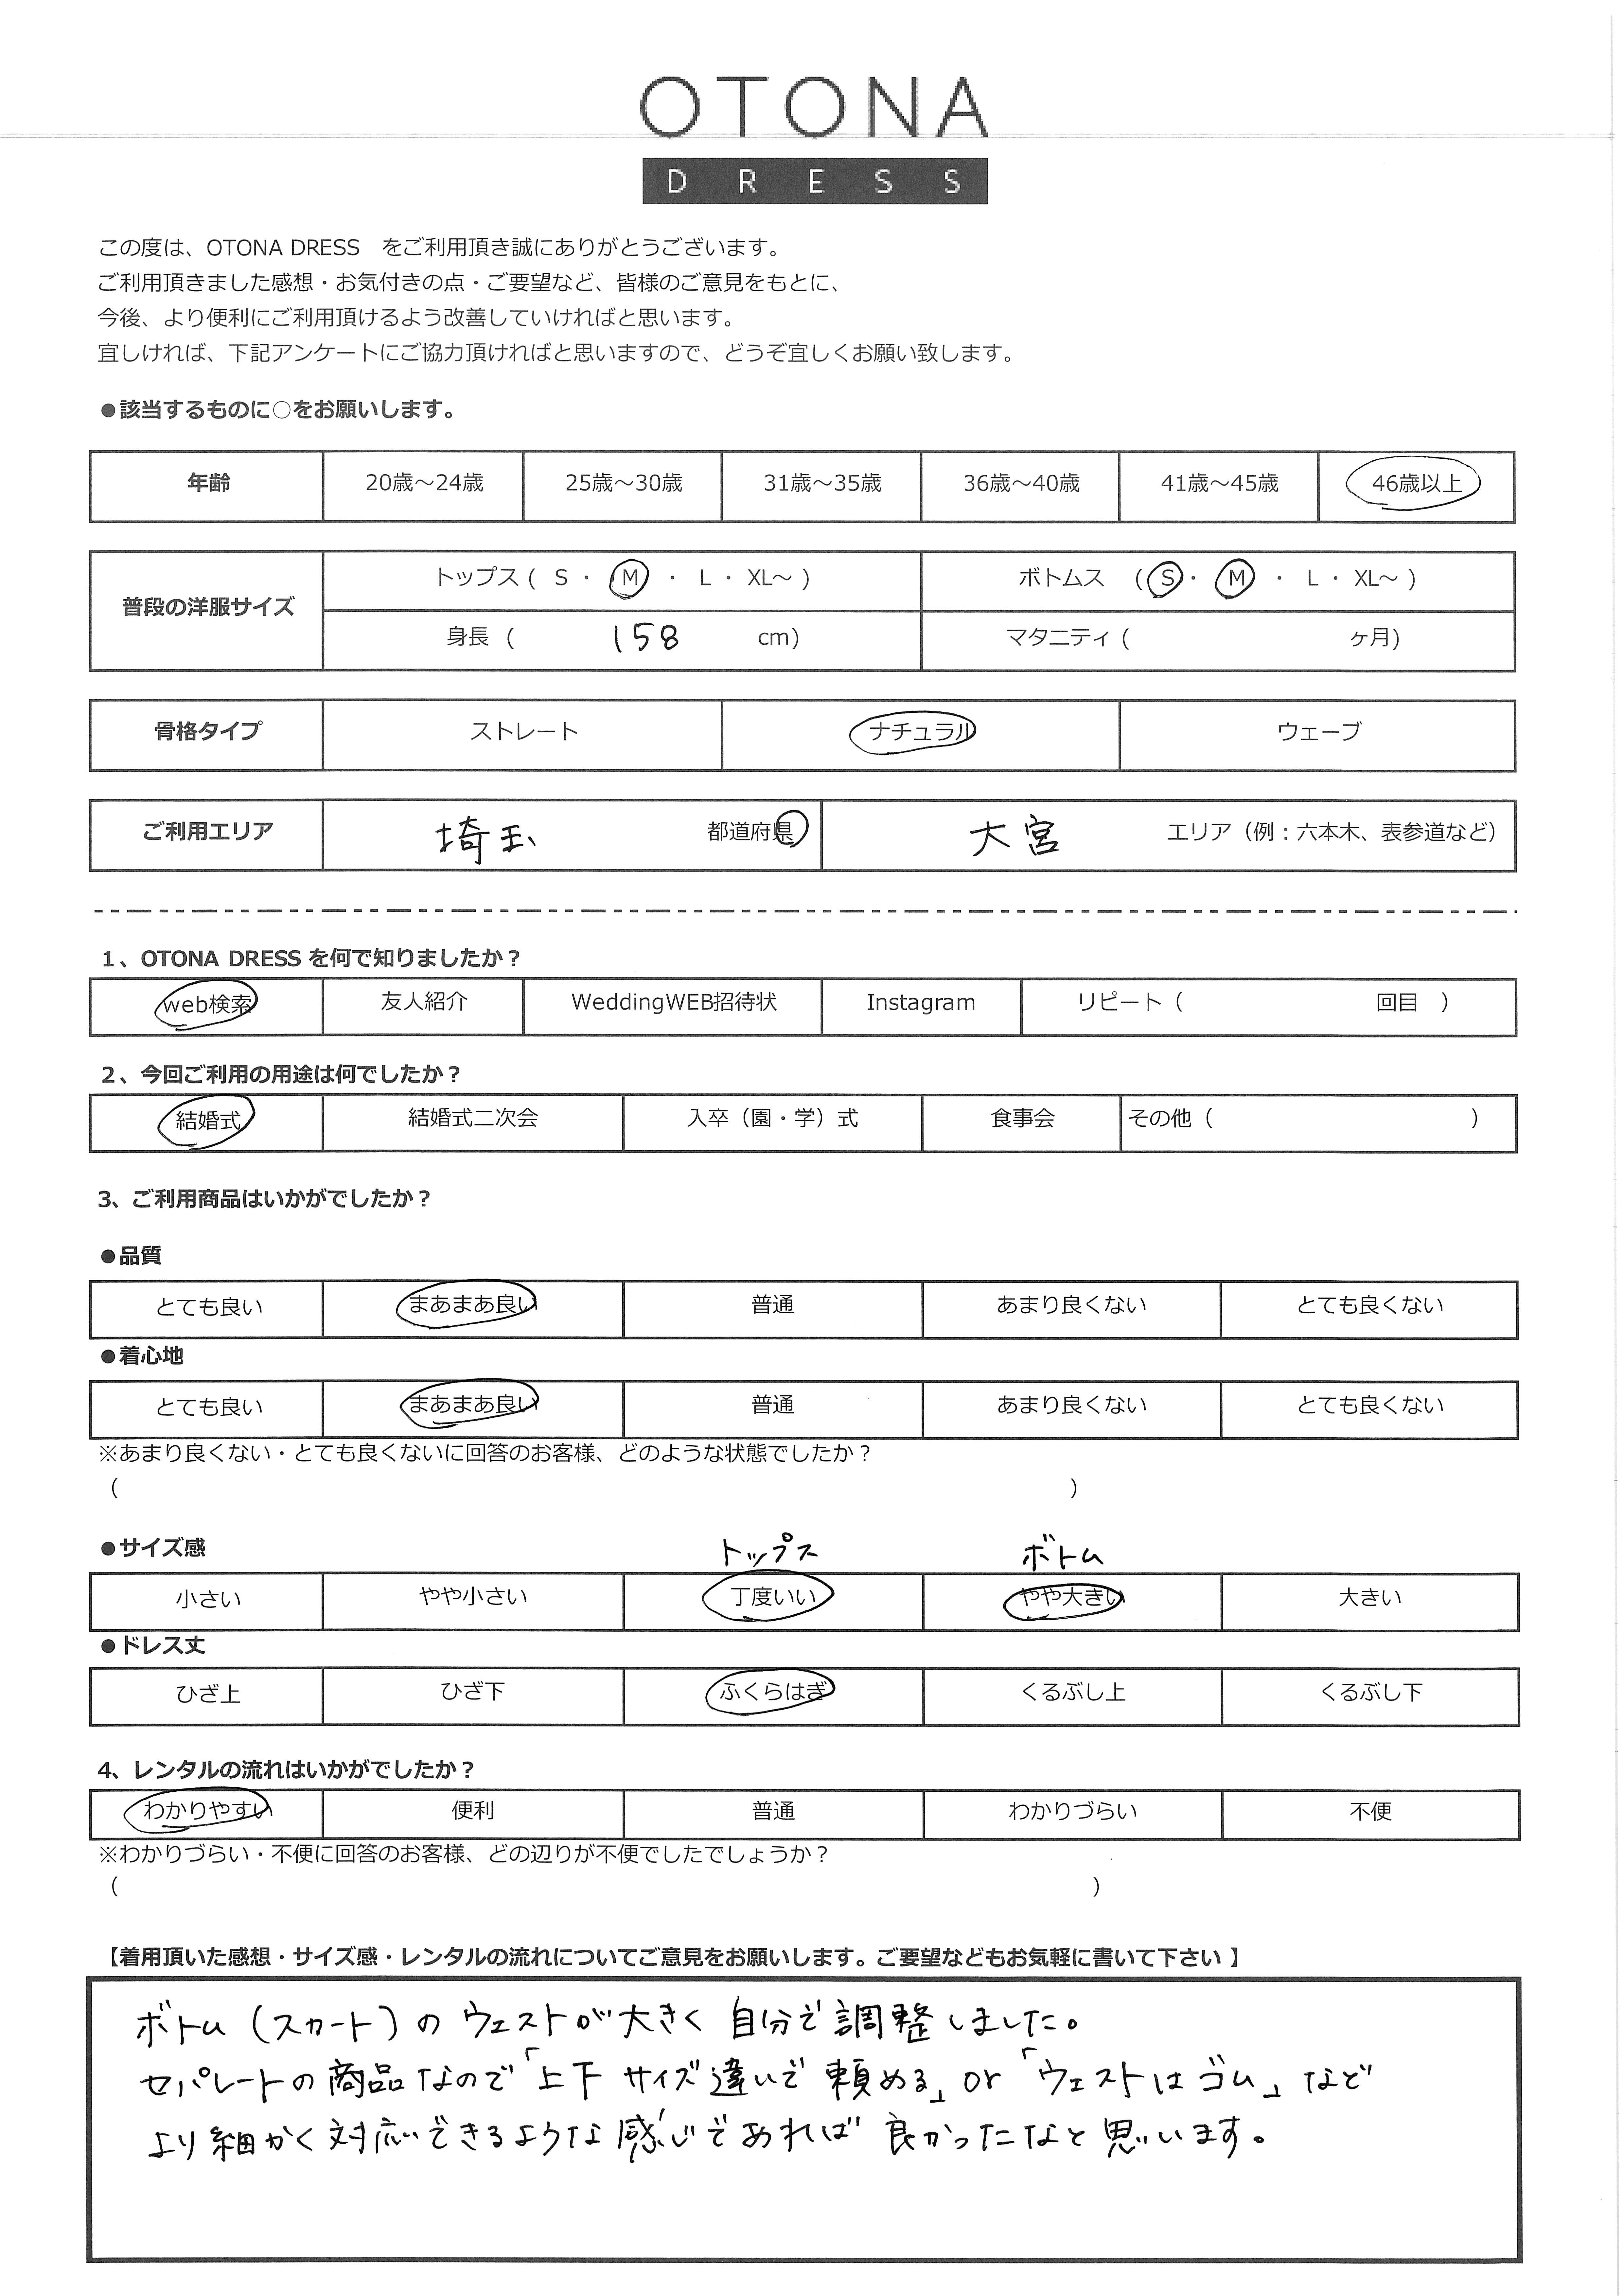 OTONA
DRESS
この度は、OTONA DRESS　をご利用頂き誠にありがとうございます。
ご利用頂きました感想・お気付きの点・ご要望など、皆様のご意見をもとに、
今後、より便利にご利用頂けるよう改善していければと思います。
宜しければ、下記アンケートにご協力頂ければと思いますので、どうぞ宜しくお願い致します。
●該当するものに○をお願いします。
年齢 20歳～24歳 25歳～30歳 31歳～35歳 36歳～40歳 41歳～45歳 46歳以上
普段の洋服サイズ トップス ( S ・ M ・ L ・ XL～ ) ボトムス ( S ・ M ・ L ・ XL～ )
身長 ( 158 cm) マタニティ ( ヶ月)
骨格タイプ ストレート ナチュラル ウェーブ
ご利用エリア 埼玉 都道府県 大宮 エリア（例：六本木、表参道など）
1、OTONA DRESS を何で知りましたか？
web検索 友人紹介 WeddingWEB招待状 Instagram リピート（ 回目 ）
2、今回ご利用の用途は何でしたか？
結婚式 結婚式二次会 入卒（園・学）式 食事会 その他（ ）
3、ご利用商品はいかがでしたか？
●品質
とても良い まあまあ良い 普通 あまり良くない とても良くない
●着心地
とても良い まあまあ良い 普通 あまり良くない とても良くない
※あまり良くない・とても良くないに回答のお客様、どのような状態でしたか？
（ ）
●サイズ感 トップス ボトム
小さい やや小さい 丁度いい やや大きい 大きい
●ドレス丈
ひざ上 ひざ下 ふくらはぎ くるぶし上 くるぶし下
4、レンタルの流れはいかがでしたか？
わかりやすい 便利 普通 わかりづらい 不便
※わかりづらい・不便に回答のお客様、どの辺りが不便でしたでしょうか？
（ ）
【着用頂いた感想・サイズ感・レンタルの流れについてご意見をお願いします。ご要望などもお気軽に書いて下さい 】
ボトム（スカート）の ウェストが大きく 自分で調整しました。
セパレートの商品なので「上下 サイズ違いで 頼める」or「ウェストはゴム」など
より細かく対応できるような感じであれば 良かったなと思います。